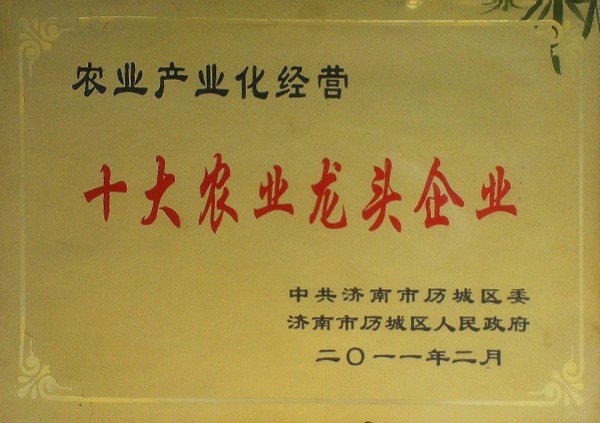 农业产业化经营
十大农业龙头企业
中共济南市历城区委
济南市历城区人民政府
二〇一一年二月